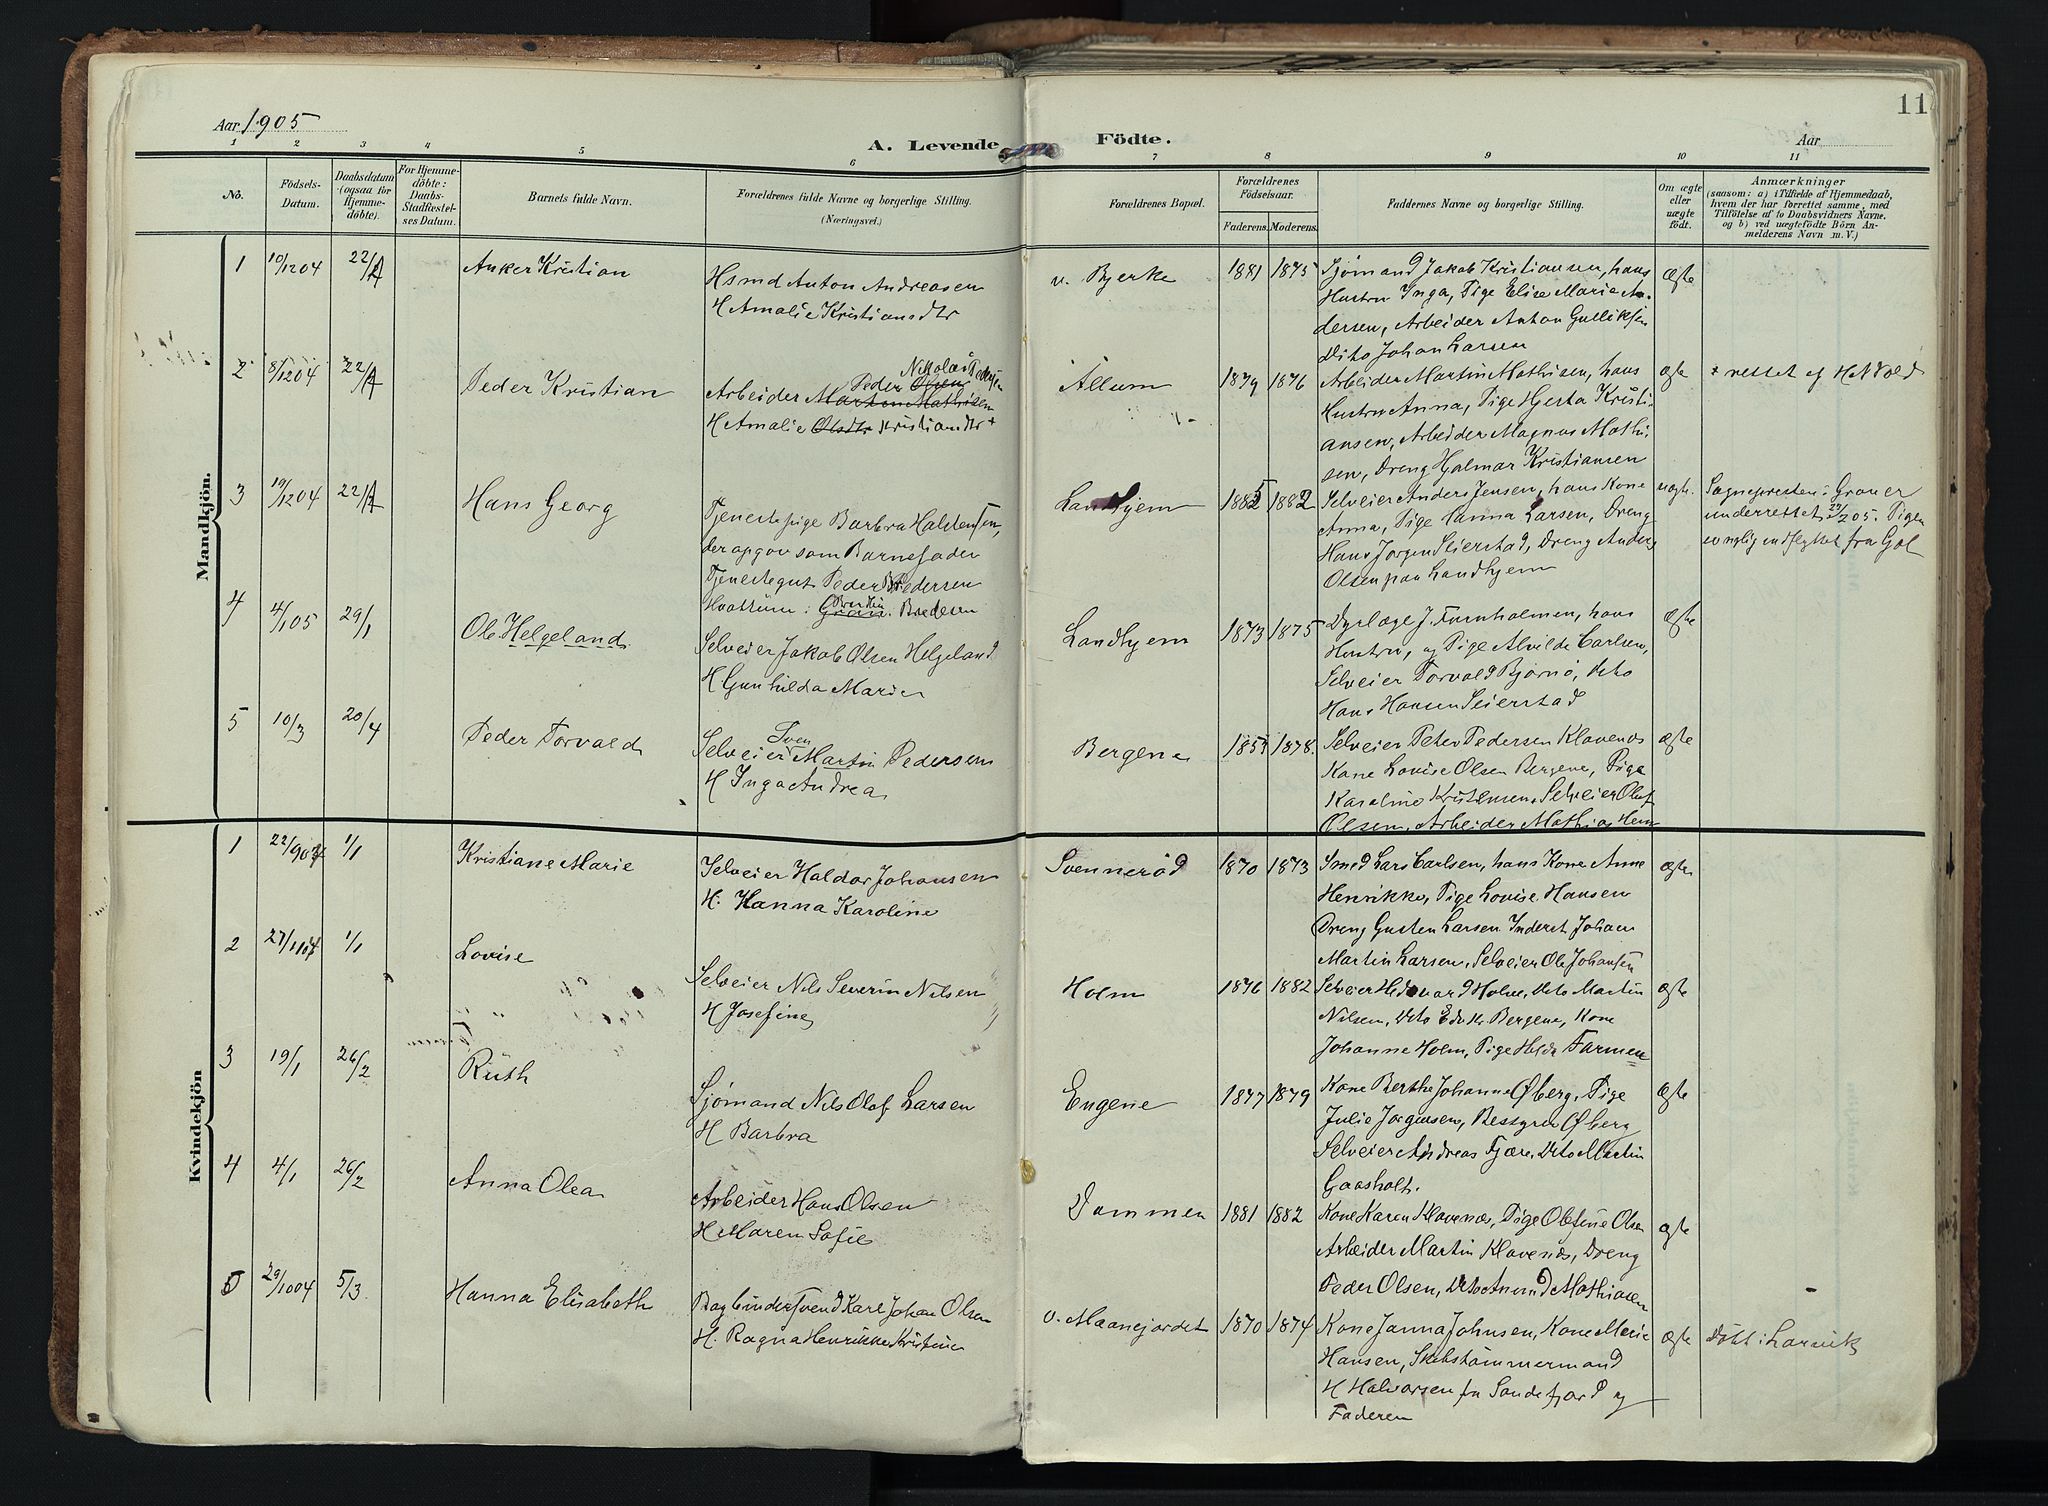 Aar 1905
A. Levende Födte.
Aar
11
1 2 3 4 5 6 7 8 9 10 11
No.
Födsels-Datum.
Daabsdatum (ogsaa for Hjemme-döbte).
For Hjemme-döbte: Daabs-Stadfæstel-ses Datum.
Barnets fulde Navn.
Forældrenes fulde Navne og borgerlige Stilling. (Næringsvei.)
Forældrenes Bopæl.
Forældrenes Födselsaar.
Faderens. Moderens.
Faddernes Navne og borgerlige Stilling.
Om ægte eller uægte födt.
Anmærkninger
(saasom: a) i Tilfælde af Hjemmedaab,
hvem der har forrettet samme, med
Tilföielse af to Daabsvidners Navne,
og b) ved uægtefödte Börn An-
melderens Navn m. V.)
Mandkjön.
1 10/12 04 22/1 Anker Kristian
Hsmd Anton Andreasen
H Amalie Kristiansdtr
v. Bjerke 1881 1875
Sjømand Jakob Kristiansen, hans
Hustru Inga, Pige Elise Marie An-
dersen, Arbeider Anton Gulliksen
Dito Johan Larsen
ægte
2 8/12 04 22/1 Peder Kristian
Nikolai Pedersen
Peder Olsen
Arbeider Martin Mathisen
H Amalie Olsdtr Kristiandtr +
Allum 1879 1876
Arbeider Martin Mathisen, hans
Hustru Anna, Pige Hjerta Kristi-
ansen, Arbeider Magnus Mathi-
sen, Dreng Hjalmar Kristiansen
ægte
+ rettet af H N Vold
3 19/12 04 22/1 Hans Georg
Tjenestepige Barbra Halstensen,
der opgav som Barnefader
Tjenestegut Peder Pedersen
Landhjem 1885 1882
Selveier Anders Jensen, hans Kone
Anna, Pige Hanna Larsen, Dreng
Hans Jørgen Seierstad, Dreng Anders
Olsen paa Landhjem
uægte
Sognepresten i Graner
underrettet 205. Pigen
indflyttet fra Gol
4 4/1 05 29/1 Ole Helgeland
Selveier Jakob Olsen Helgeland
H Gunhilda Marie
Landhjem 1873 1875
Dyrlæge J. Furnholmen, hans
Hustru, og Pige Alvilde Carlsen,
Selveier Torvald Bjørnø, Dito
Hans Hansen Seierstad
Ægte
5 10/3 20/4 Peder Torvald
Sven
Selveier Martin Pedersen
H Inga Andrea
Bergene 1853 1878.
Selveier Peter Pedersen Klavenæs
Kone Lovise Olsen Bergene, Pige
Karoline Kristensen, Selveier Olaf
Olsen, Arbeider Mathias Hem
ægte
Kvindekjön
1 22/9 04 1/1 Kristiane Marie
Selveier Haldor Johansen
H. Hanna Karoline
Svennerød 1870 1873
Smed Lars Carlsen, hans Kone Anne
Henrikke, Pige Lovise Hansen
Dreng Gusten Larsen Inderst Johan
Martin Larsen, Selveier Ole Johansen
ægte
2 27/11 04 1/1 Lovise
Selveier Nils Severin Nilsen
H Josefine
Holm 1876 1882
Selveier Hedevard Holm, Dito Martin
Nilsen, Dito Bergene, Kone
Johanne Holm, Pige Hilda Farmen
ægte
3 19/1 26/2 Ruth
Sjømand Nils Olaf Larsen
H Barbra
Eugene 1877 1879
Kone Berthe Johanne Øberg, Pige
Julie Jørgensen, Bestyrer Øberg
Selveier Andreas Fjære, Dito Martin
Gaasholt.
Ægte
4 4/1 26/2 Anna Olea
Arbeider Hans Olsen
H Maren Sofie
Dammen 1881 1882
Kone Karen Klavenæs, Pige Olefine Olsen
Arbeider Martin Klavenæs, Dreng
Peder Olsen, Dito Amund Mathiasen
ægte
5 29/10 04 5/3. Hanna Elisabeth
Bogbindersvend Karl Johan Olsen
H. Ragna Henrikke Kristine
v. Maanejordet 1870 1874
Kone Janna Johnsen, Kone Marie
Hansen, Skibstømmermand
H Halvorsen fra Sandefjord og
Faderen
ægte
Født i Larvik